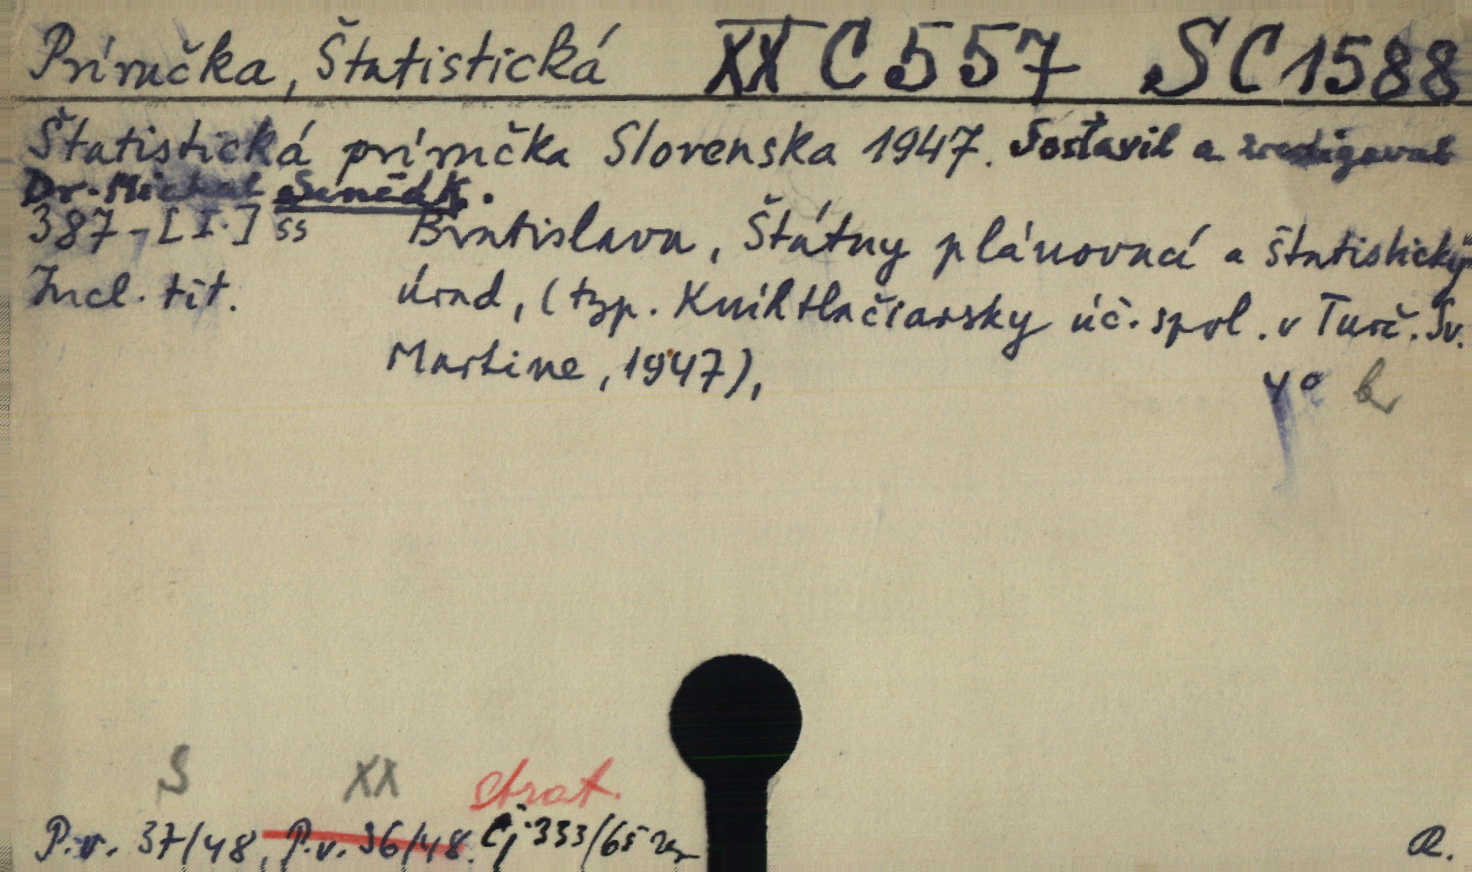 Príručka, Štatistická XX C 557 SC 1588
Štatistická príručka Slovenska 1947. Sostavil a zredigoval
Dr. Michal
387-[I.] ss Bratislava, Štátny plánovací a štatistický
Incl. tit. úrad, (typ. Kníhtlačiarsky úč. spol. v Turč. Sv.
Martine, 1947),
4°
S XX
P.v. 37/48, P.v. 36/48. Čj 333/65 R.